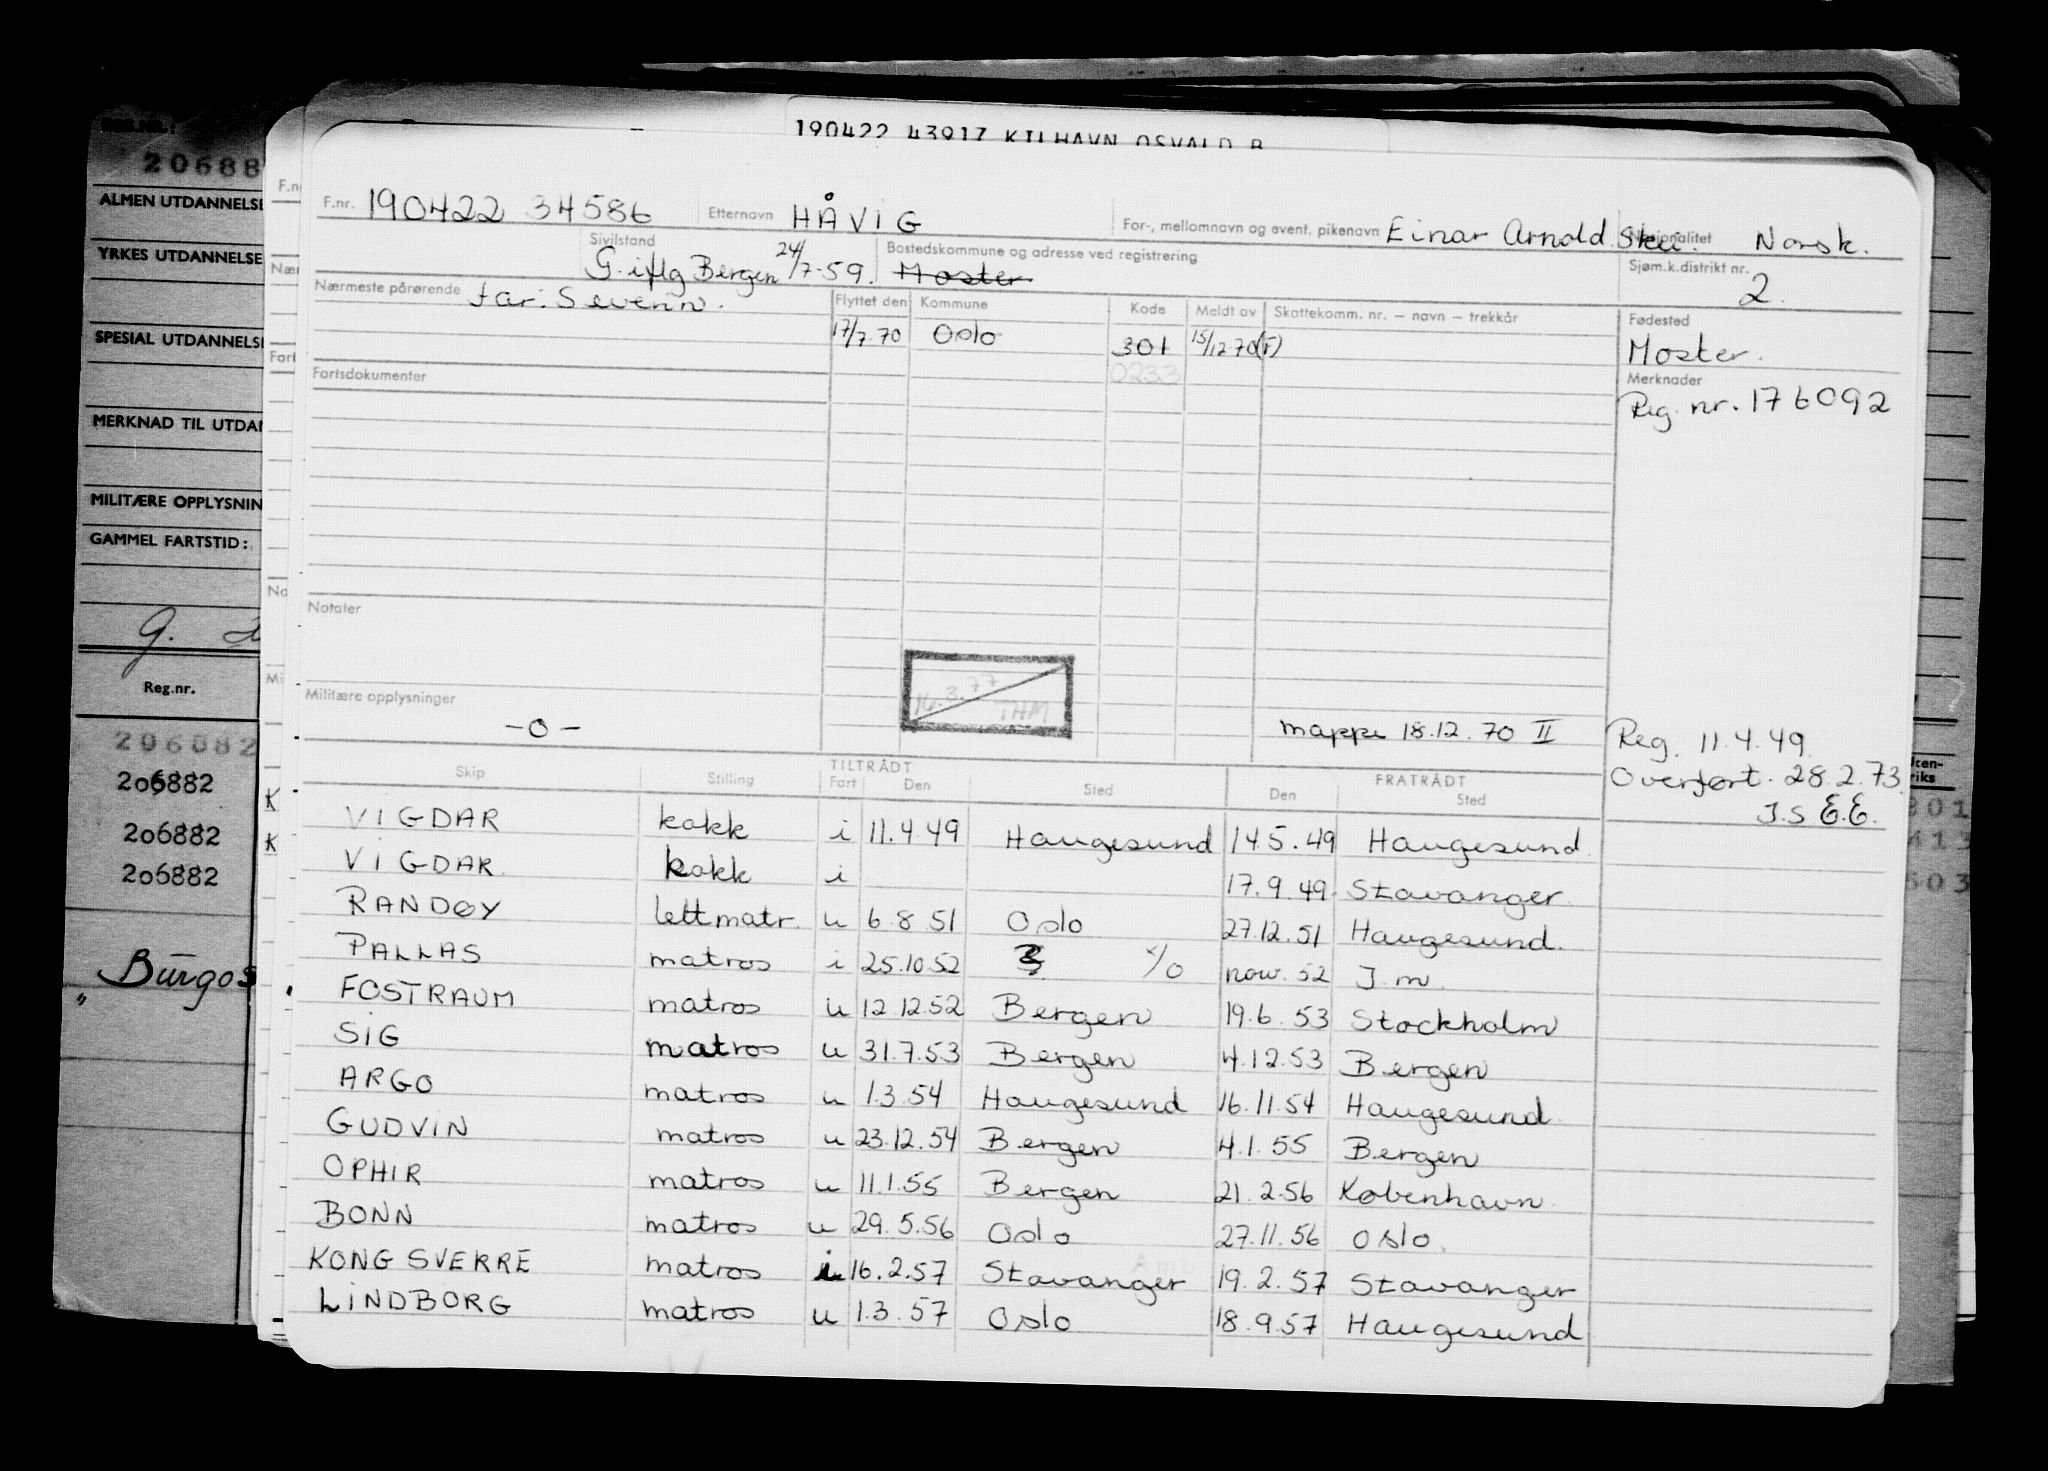 190422 43917 KILHAVN OSVALD B
F.nr. 190422 34586 Etternavn HÅVIG For-, mellomnavn og event. pikenavn Einar Arnold Nasjonalitet Norsk.
Sivilstand G. iflg Bergen 24/7-59. Bostedskommune og adresse ved registrering Moster Sjøm.k.distrikt nr. 2.
Nærmeste pårørende far: Severin. Flyttet den Kommune Kode Meldt av Skattekomm. nr. – navn – trekkår Fødested
17/7.70 Oslo 301 15/12 70(F) Moster.
0233
Fartsdokumenter Merknader
Reg. nr. 176092
Notater
16.3.77 THM
Militære opplysninger
-0- mappe 18.12.70 II Reg. 11.4.49.
Overført. 28.2.73
J.S E.E.
Skip Stilling TILTRÅDT Fart Den Sted FRATRÅDT Den Sted
VIGDAR kokk i 11.4 49 Haugesund 14 5. 49 Haugesund.
VIGDAR. kokk i 17.9.49. Stavanger.
RANDØY lettmatr. u 6.8 51 Oslo 27.12.51 Haugesund.
PALLAS matros i 25.10.52 nov. 52 J.m.
FOSTRAUM matros u 12.12.52 Bergen 19.6.53 Stockholm
SIG matros u 31.7.53 Bergen 4.12.53 Bergen
ARGO matros u 1.3.54 Haugesund 16.11.54 Haugesund.
GUDVIN matros u 23.12.54 Bergen 4.1.55 Bergen
OPHIR matros u 11.1.55 Bergen 21.2.56 København.
BONN matros u 29.5.56 Oslo 27.11.56 Oslo.
KONG SVERRE matros i 16.2.57 Stavanger 19.2.57 Stavanger
LINDBORG matros u 1.3.57 Oslo 18.9.57 Haugesund
20688
ALMEN UTDANNELSE
YRKES UTDANNELSE
SPESIAL UTDANNELSE
MERKNAD TIL UTDAN
MILITÆRE OPPLYSNIN
GAMMEL FARTSTID:
G.
Reg.nr.
206882
206882
206882
206882
Burgos
"
F.n
Nær
Fart
No
Mi
K
K
riks
301
413
503